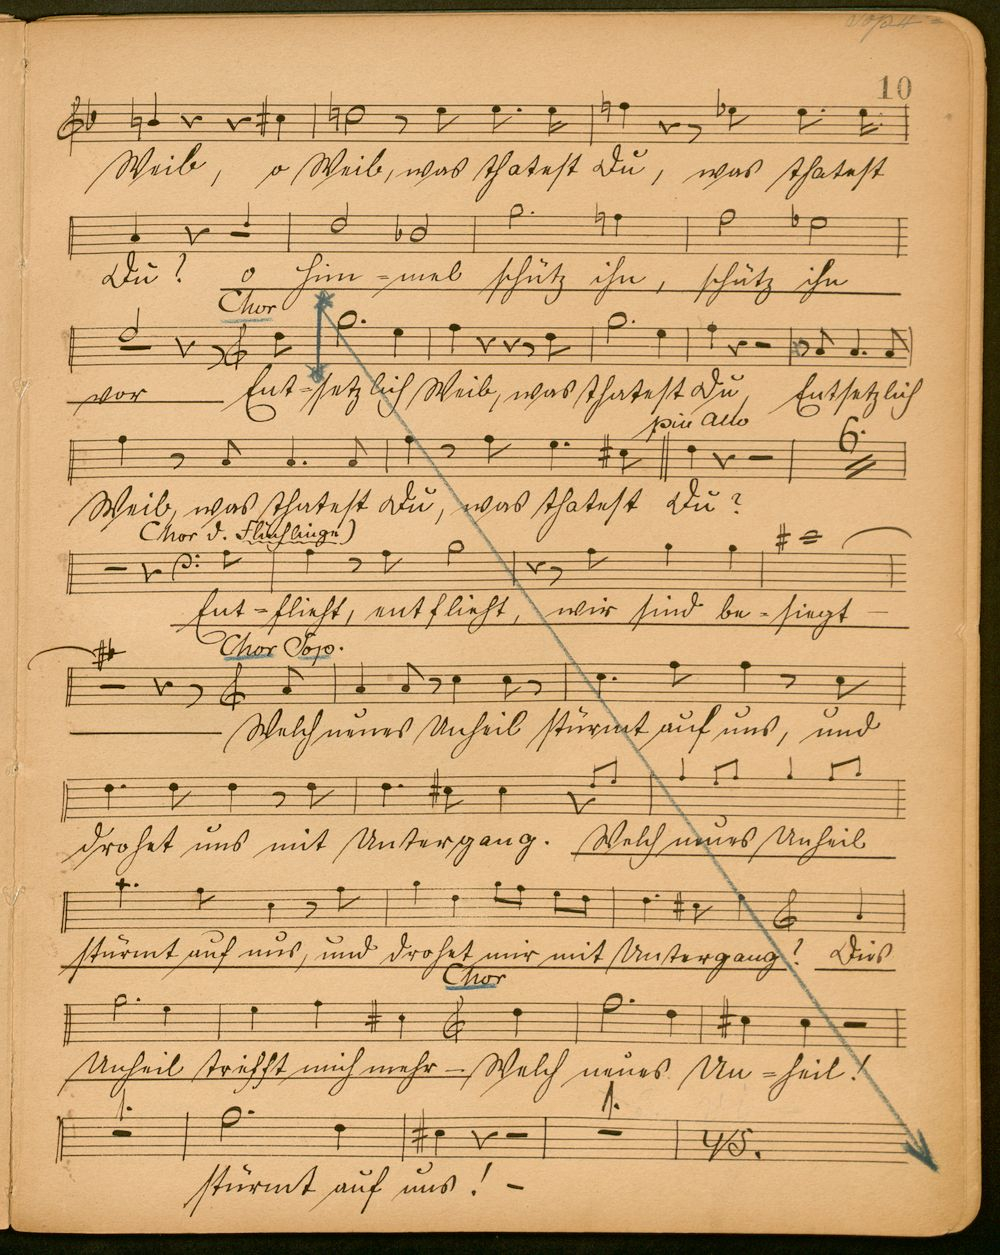 10
Weib, o Weib, was thatest Du, was thatest
Du? o Him=mel schütz ihn, schütz ihn
Chor
vor Ent=setzlich Weib, was thatest Du, Entsetzlich
più Allo
6.
Weib, was thatest Du, was thatest Du?
Chor d. Flüchlinge)
Ent=flieht, entflieht, wir sind be=siegt —
Chor Sop.
Welch neues Unheil stürmt auf uns, und
drohet uns mit Untergang. Welch neues Unheil
stürmt auf uns, und drohet mir mit Untergang? Dies
Chor
Unheil trifft mich mehr — Welch neues Un=heil!
1. 1.
4/5.
stürmt auf uns! —